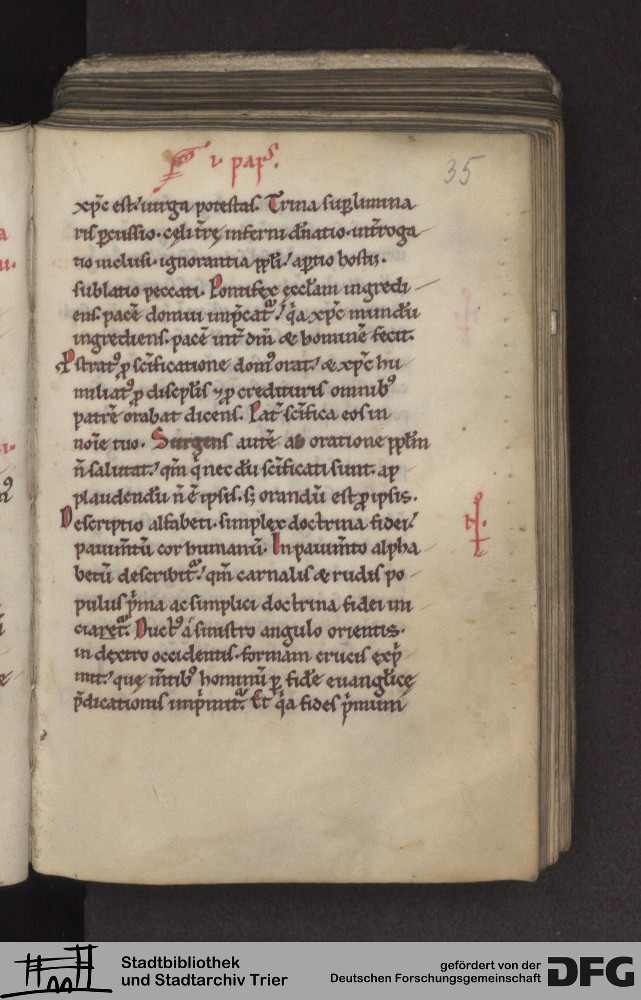 i· pars·
35
xp̄c est· uirga potestas. Trina sup̲limina
ris p̲cussio· cęli t̄rę inferni dn̄atio· int̄roga
tio inclusi· ignorantia pp̄li· ap̲tio hostii·
sublatio peccati. Pontifex ęccl̄am ingredi
ens pacē domui imp̄cat᷑· q̄a xp̄c mundū
ingrediens· pacē int̄ dm̄ & hominē fecit.
Pstrat᷒ p̱ sc̄ificatione dom᷒ orat· & xp̄c hu
miliat᷒ p̱ discipl̄is ⁊ p̱ credituris omnib᷒
patrē orabat dicens. Pat̄ sc̄ifica eos in
noīe tuo. Surgens autē ab oratione pp̄lm̄
n̄ salutat· qm̄ q̄ nec dū sc̄ificati sunt· ap
plaudendū n̄ ē ipsis· s; orandū est p̱ ipsis.
Descriptio alfabeti· simplex doctrina fidei·
pauim̄tū cor humanū. In pauim̄to alpha
betū describit᷑· qm̄ carnalis & rudis po
pulus p̄ma ac simplici doctrina fidei ini
ciaret᷑. Duct᷒ a sinistro angulo orientis·
in dextro occidentis· formam crucis exp̄
mit· quę m̄tib᷒ hominū p̲ fidē euangl̄icę
p̄dicationis imp̄mit᷑. Et q̄a fides p̄mum
Stadtbibliothek
und Stadtarchiv Trier
gefördert von der
Deutschen Forschungsgemeinschaft
DFG